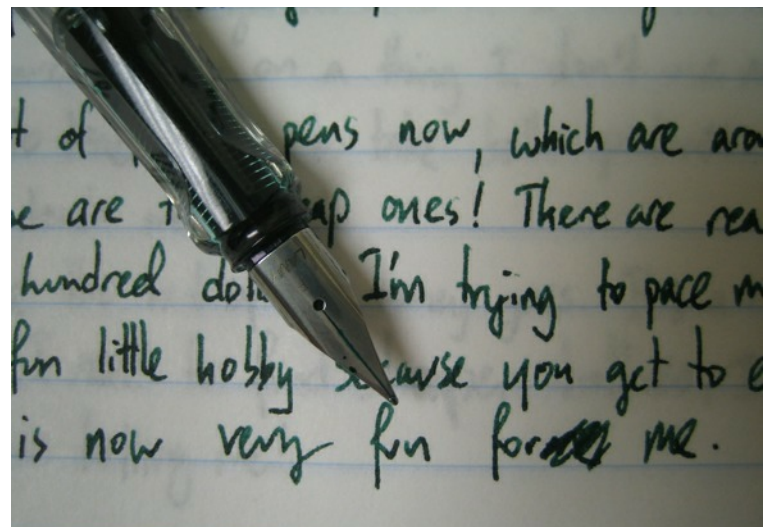 t of pens now, which are
are ones! There are
hundred I'm trying to pace
fun little hobby because you get to
is now very fun for me.